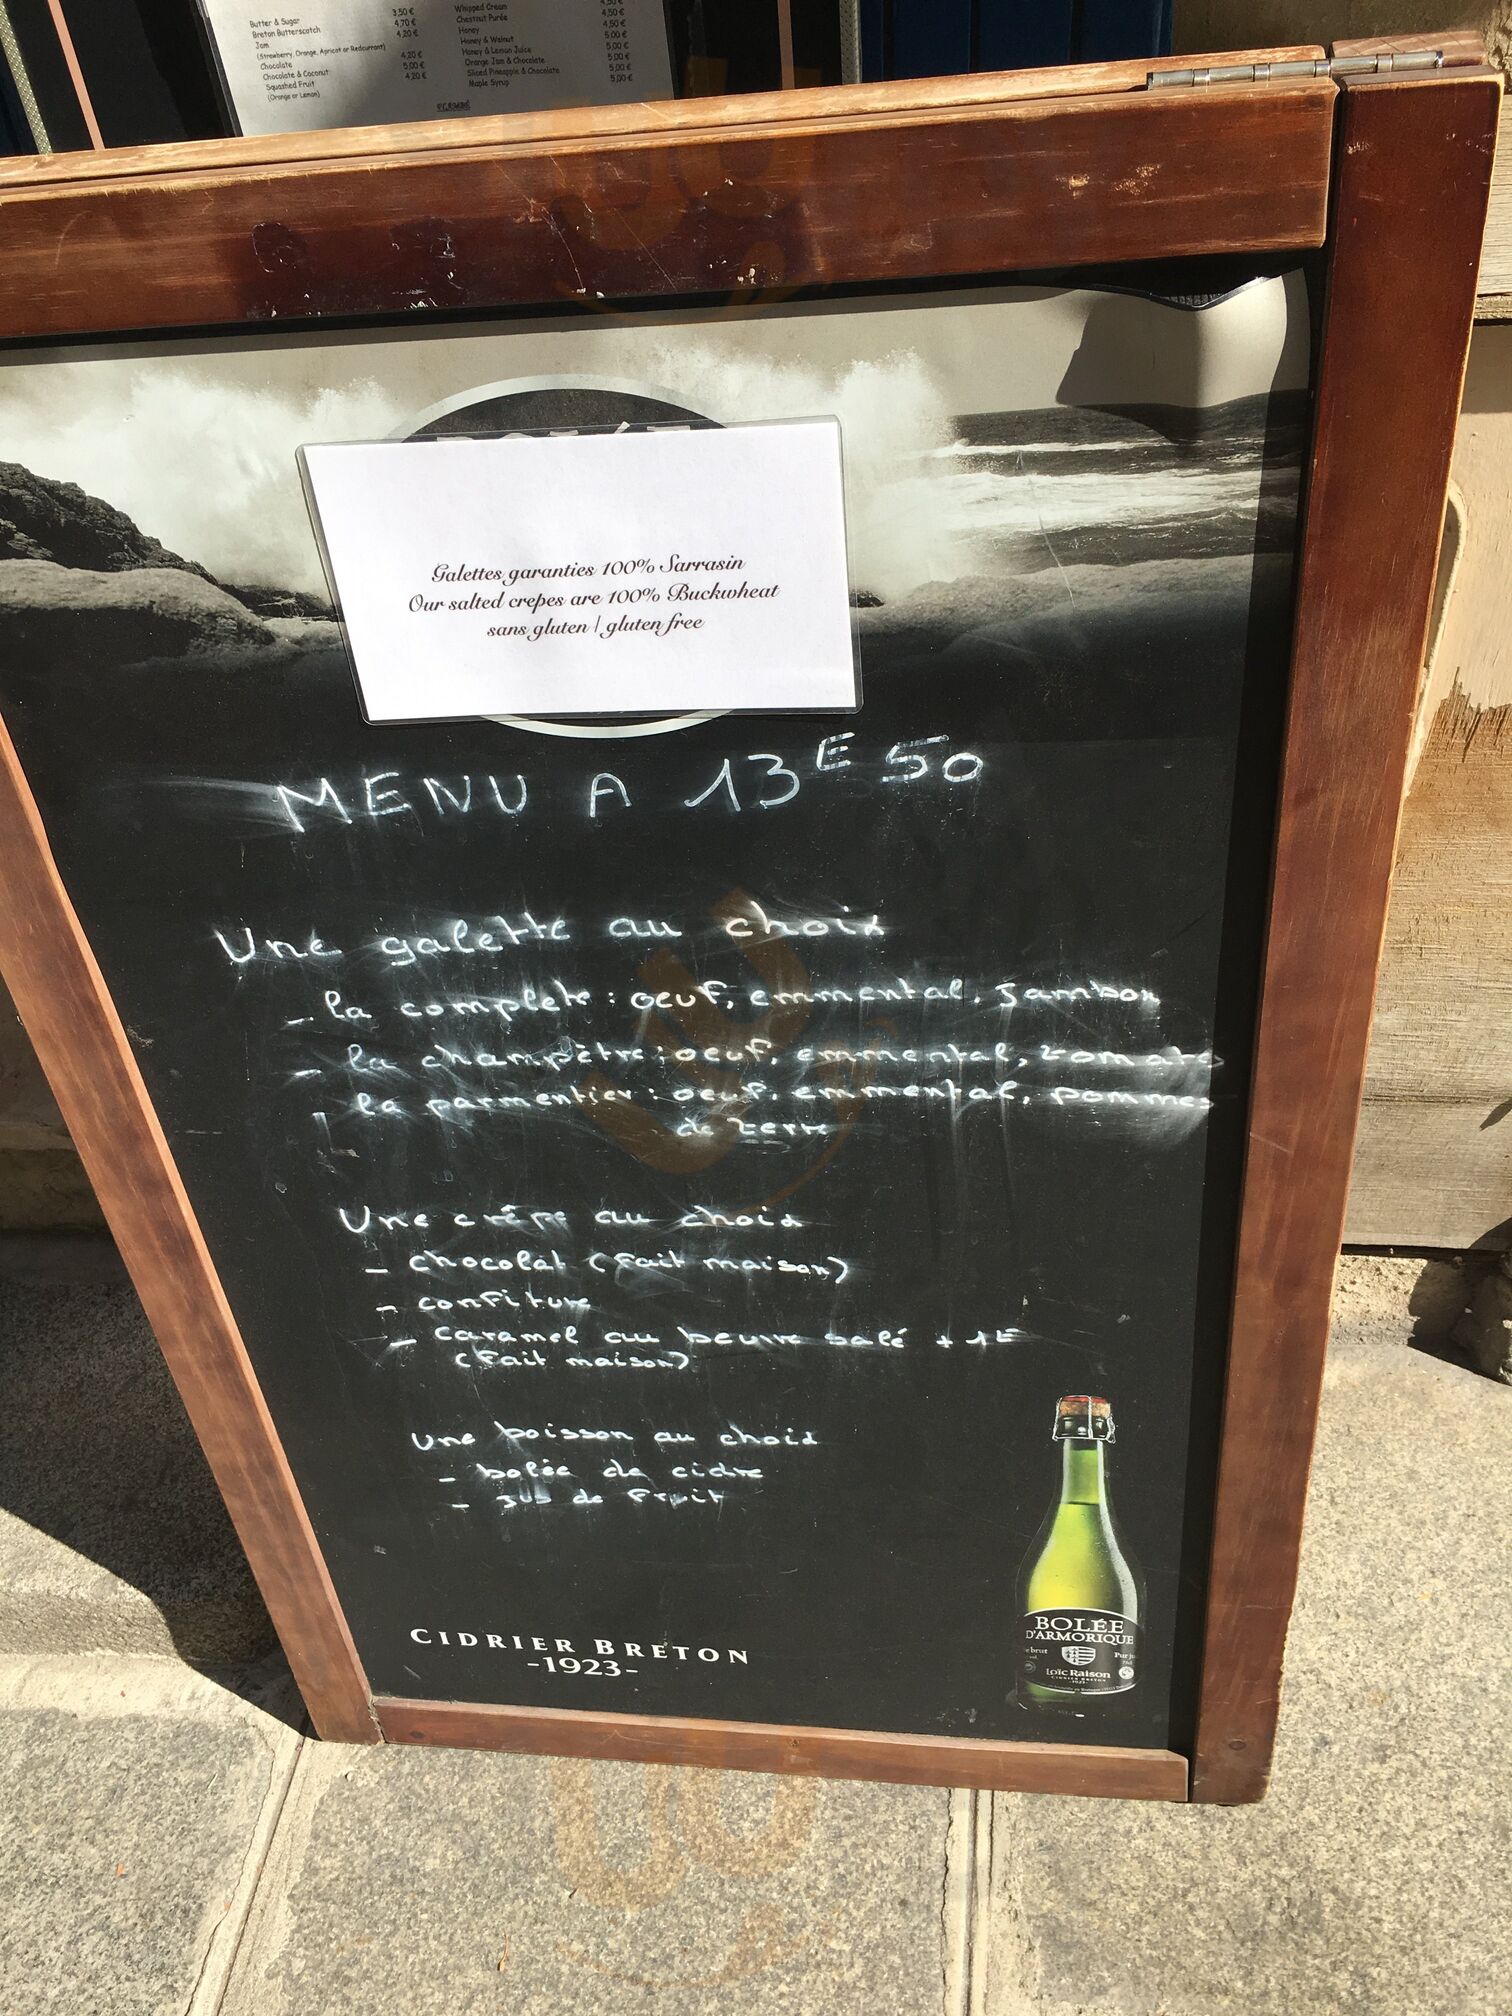 Butter & Sugar 3,50 €
Breton Butterscotch 4,70 €
Jam 4,20 €
(Strawberry, Orange, Apricot or Redcurrant)
Chocolate 4,20 €
Chocolate & Coconut 5,00 €
Squashed Fruit 4,20 €
(Orange or Lemon)
Whipped Cream 4,50 €
Chestnut Purée 4,50 €
Honey 4,50 €
Honey & Walnut 5,00 €
Honey & Lemon Juice 5,00 €
Orange Jam & Chocolate 5,00 €
Sliced Pineapple & Chocolate 5,00 €
Maple Syrup 5,00 €
Galettes garanties 100% Sarrasin
Our salted crepes are 100% Buckwheat
sans gluten | gluten free
MENU A 13E50
Une galette au choix
- la complete : oeuf, emmental, jambon
- la champêtre : oeuf, emmental, tomate
- la parmentier : oeuf, emmental, pommes
de terre
Une crêpe au choix
- chocolat (fait maison)
- confiture
- caramel au beurre salé + 1E
(fait maison)
une boisson au choix
- bolée de cidre
- jus de fruit
CIDRIER BRETON
-1923-
BOLÉE
D'ARMORIQUE
Loïc Raison
CIDRIER BRETON
-1923-